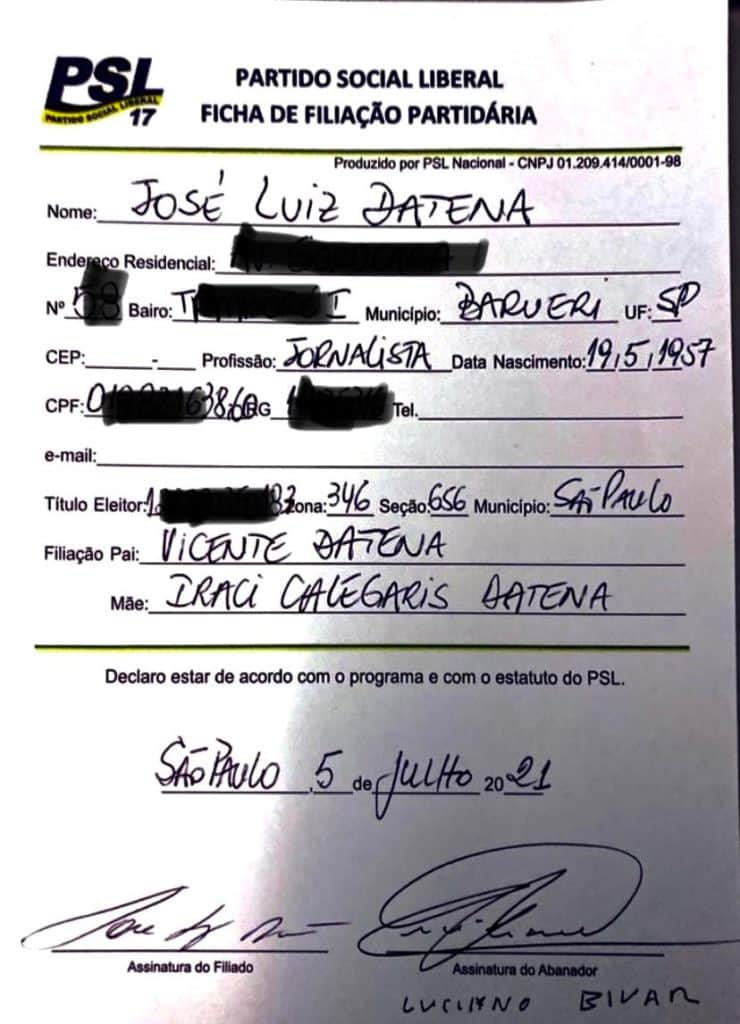 PSL
PARTIDO SOCIAL LIBERAL
17
PARTIDO SOCIAL LIBERAL
FICHA DE FILIAÇÃO PARTIDÁRIA
Produzido por PSL Nacional - CNPJ 01.209.414/0001-98
Nome: JOSÉ LUIZ DATENA
Endereço Residencial:
Nº Bairo: Município: BARUERI UF: SP
CEP: - Profissão: JORNALISTA Data Nascimento: 19,5,1957
CPF: RG Tel.
e-mail:
Título Eleitor: Zona: 346 Seção: 656 Município: SÃO PAULO
Filiação Pai: VICENTE DATENA
Mãe: IRACI CALEGARIS DATENA
Declaro estar de acordo com o programa e com o estatuto do PSL.
SÃO PAULO, 5 de JULHO 2021
Assinatura do Filiado
Assinatura do Abanador
LUCIANO BIVAR